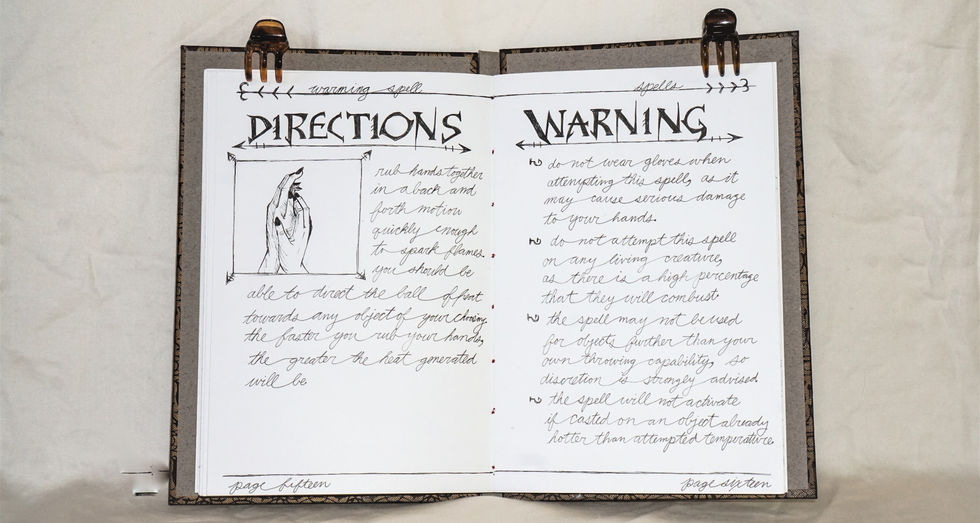 warming spell
DIRECTIONS
rub hands together
in a back and
forth motion
quickly enough
to spark flames.
you should be
able to direct the ball of heat
towards any object of your choosing.
the faster you rub your hands,
the greater the heat generated
will be
page fifteen
spells
WARNING
do not wear gloves when
attempting this spell, as it
may cause serious damage
to your hands.
do not attempt this spell
on any living creature,
as there is a high percentage
that they will combust.
the spell may not be used
for objects further than your
own throwing capability, so
discretion is strongly advised
the spell will not activate
if casted on an object already
hotter than attempted temperature
page sixteen